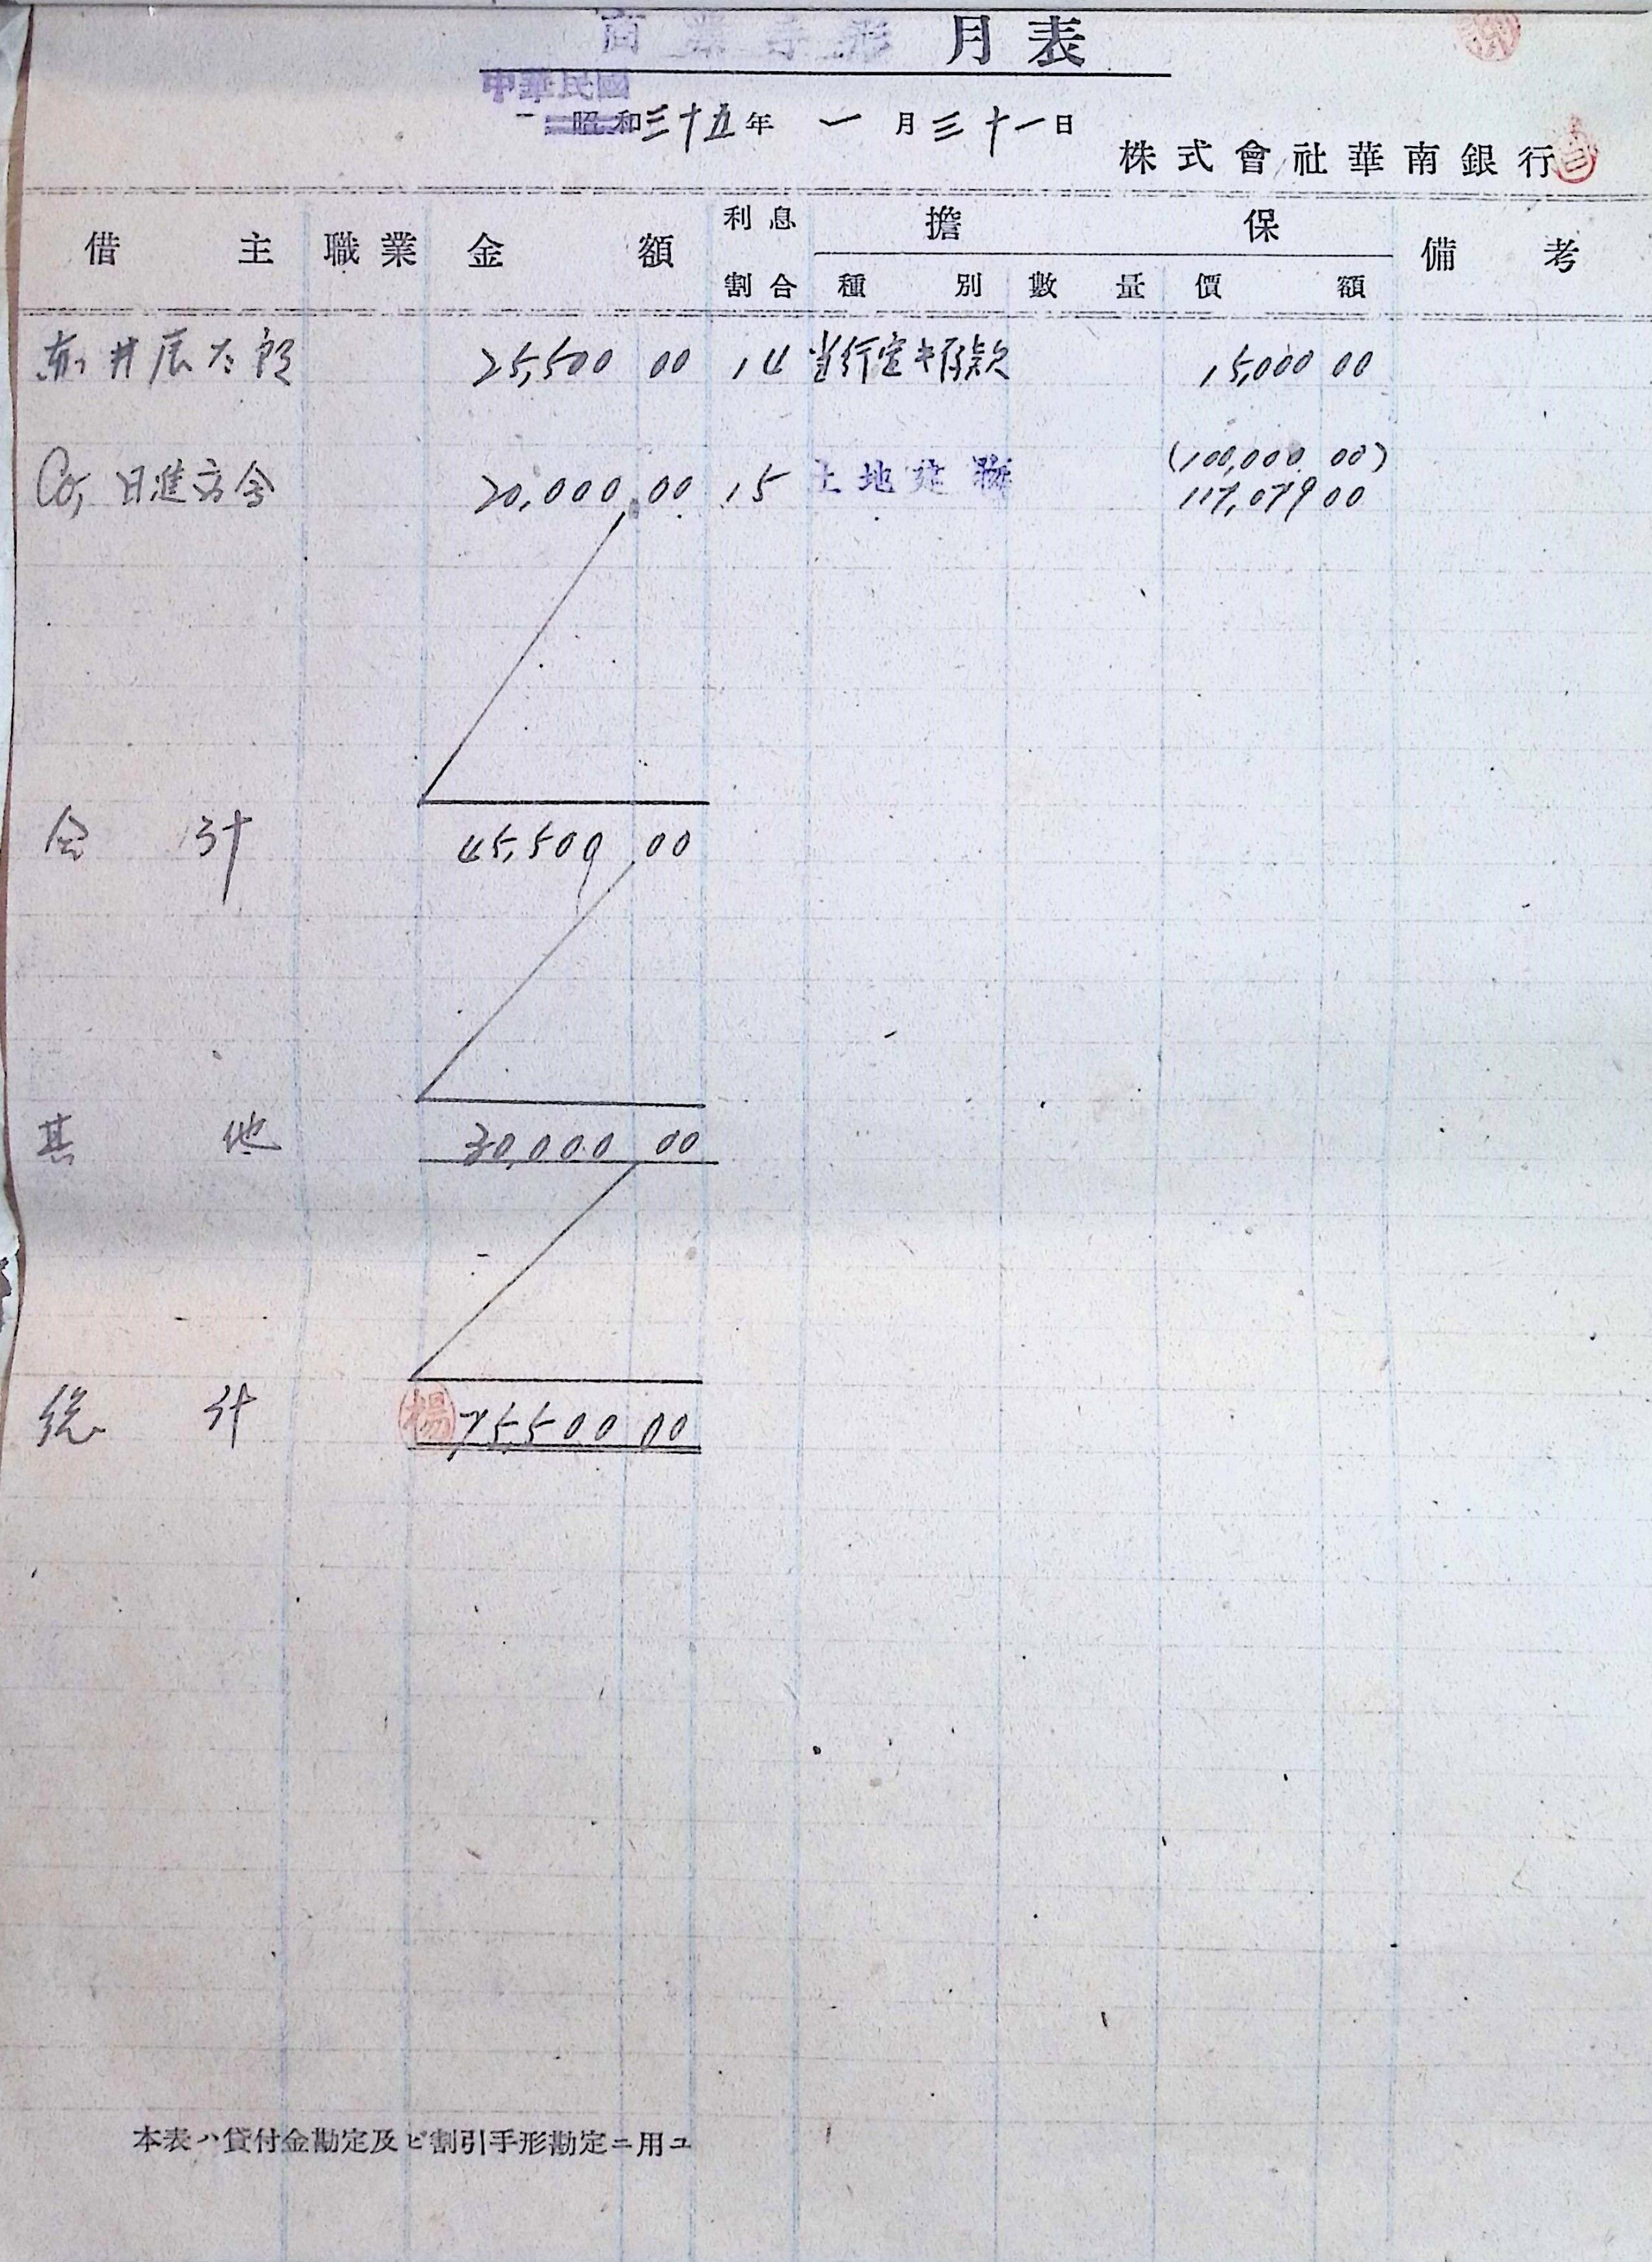 商業手形 月表
中華民國
昭和三十五年 一月三十一日
株式會社華南銀行
借主 職業 金額 利息割合 擔保 備考
種別 數量 價額
井辰太郎 25,500 00 14 当行定期存款 15,000 00
(100,000 00)
Co, 日進商会 20,000.00 15 土地建物 117,079 00
合計 45,500 00
其他 30,000 00
総計 楊 75,500 00
本表ハ貸付金勘定及ビ割引手形勘定ニ用ユ